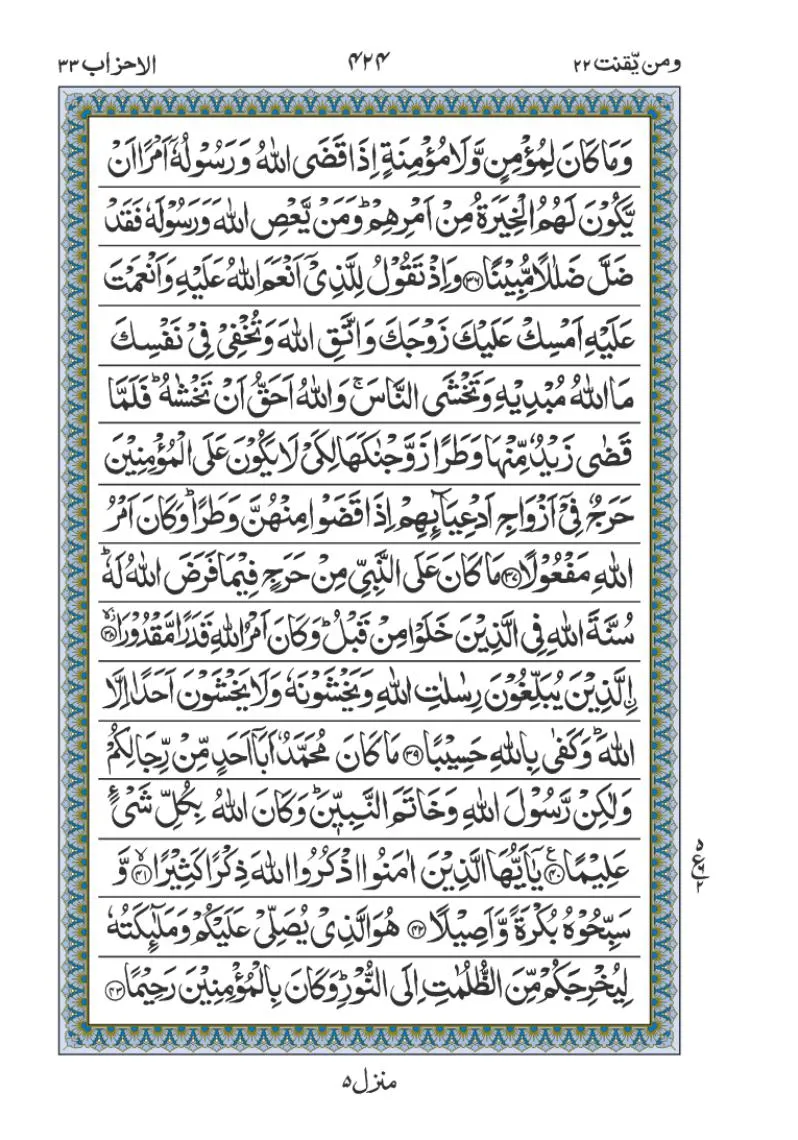 ومن یّقنت ۲۲
۴۲۴
الاحزاب ۳۳
وَمَا كَانَ لِمُؤْمِنٍ وَّلَا مُؤْمِنَةٍ اِذَا قَضَى اللّٰهُ وَرَسُوْلُهٗۤ اَمْرًا اَنْ
يَّكُوْنَ لَهُمُ الْخِيَرَةُ مِنْ اَمْرِهِمْ ؕ وَمَنْ يَّعْصِ اللّٰهَ وَرَسُوْلَهٗ فَقَدْ
ضَلَّ ضَلٰلًا مُّبِيْنًا ﴿۳۶﴾ وَاِذْ تَقُوْلُ لِلَّذِيْۤ اَنْعَمَ اللّٰهُ عَلَيْهِ وَاَنْعَمْتَ
عَلَيْهِ اَمْسِكْ عَلَيْكَ زَوْجَكَ وَاتَّقِ اللّٰهَ وَتُخْفِيْ فِيْ نَفْسِكَ
مَا اللّٰهُ مُبْدِيْهِ وَتَخْشَى النَّاسَ ۚ وَاللّٰهُ اَحَقُّ اَنْ تَخْشٰىهُ ؕ فَلَمَّا
قَضٰى زَيْدٌ مِّنْهَا وَطَرًا زَوَّجْنٰكَهَا لِكَيْ لَا يَكُوْنَ عَلَى الْمُؤْمِنِيْنَ
حَرَجٌ فِيْۤ اَزْوَاجِ اَدْعِيَآىِٕهِمْ اِذَا قَضَوْا مِنْهُنَّ وَطَرًا ؕ وَكَانَ اَمْرُ
اللّٰهِ مَفْعُوْلًا ﴿۳۷﴾ مَا كَانَ عَلَى النَّبِيِّ مِنْ حَرَجٍ فِيْمَا فَرَضَ اللّٰهُ لَهٗ ؕ
سُنَّةَ اللّٰهِ فِي الَّذِيْنَ خَلَوْا مِنْ قَبْلُ ؕ وَكَانَ اَمْرُ اللّٰهِ قَدَرًا مَّقْدُوْرًا ﴿۳۸﴾
اِ۟لَّذِيْنَ يُبَلِّغُوْنَ رِسٰلٰتِ اللّٰهِ وَيَخْشَوْنَهٗ وَلَا يَخْشَوْنَ اَحَدًا اِلَّا
اللّٰهَ ؕ وَكَفٰى بِاللّٰهِ حَسِيْبًا ﴿۳۹﴾ مَا كَانَ مُحَمَّدٌ اَبَاۤ اَحَدٍ مِّنْ رِّجَالِكُمْ
وَلٰكِنْ رَّسُوْلَ اللّٰهِ وَخَاتَمَ النَّبِيّٖنَ ؕ وَكَانَ اللّٰهُ بِكُلِّ شَيْءٍ
عَلِيْمًا ﴿۴۰﴾ يٰۤاَيُّهَا الَّذِيْنَ اٰمَنُوا اذْكُرُوا اللّٰهَ ذِكْرًا كَثِيْرًا ﴿۴۱﴾ وَّ
سَبِّحُوْهُ بُكْرَةً وَّاَصِيْلًا ﴿۴۲﴾ هُوَ الَّذِيْ يُصَلِّيْ عَلَيْكُمْ وَمَلٰٓىِٕكَتُهٗ
لِيُخْرِجَكُمْ مِّنَ الظُّلُمٰتِ اِلَى النُّوْرِ ؕ وَكَانَ بِالْمُؤْمِنِيْنَ رَحِيْمًا ﴿۴۳﴾
۵
ع ۶
۲
منزل ۵